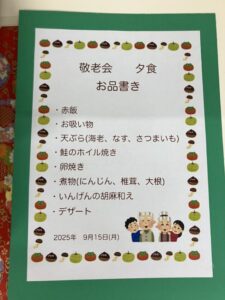 敬老会　　夕食
お品書き
・赤飯
・お吸い物
・天ぷら(海老、なす、さつまいも)
・鮭のホイル焼き
・卵焼き
・煮物(にんじん、椎茸、大根)
・いんげんの胡麻和え
・デザート
2025年　9月15日(月)